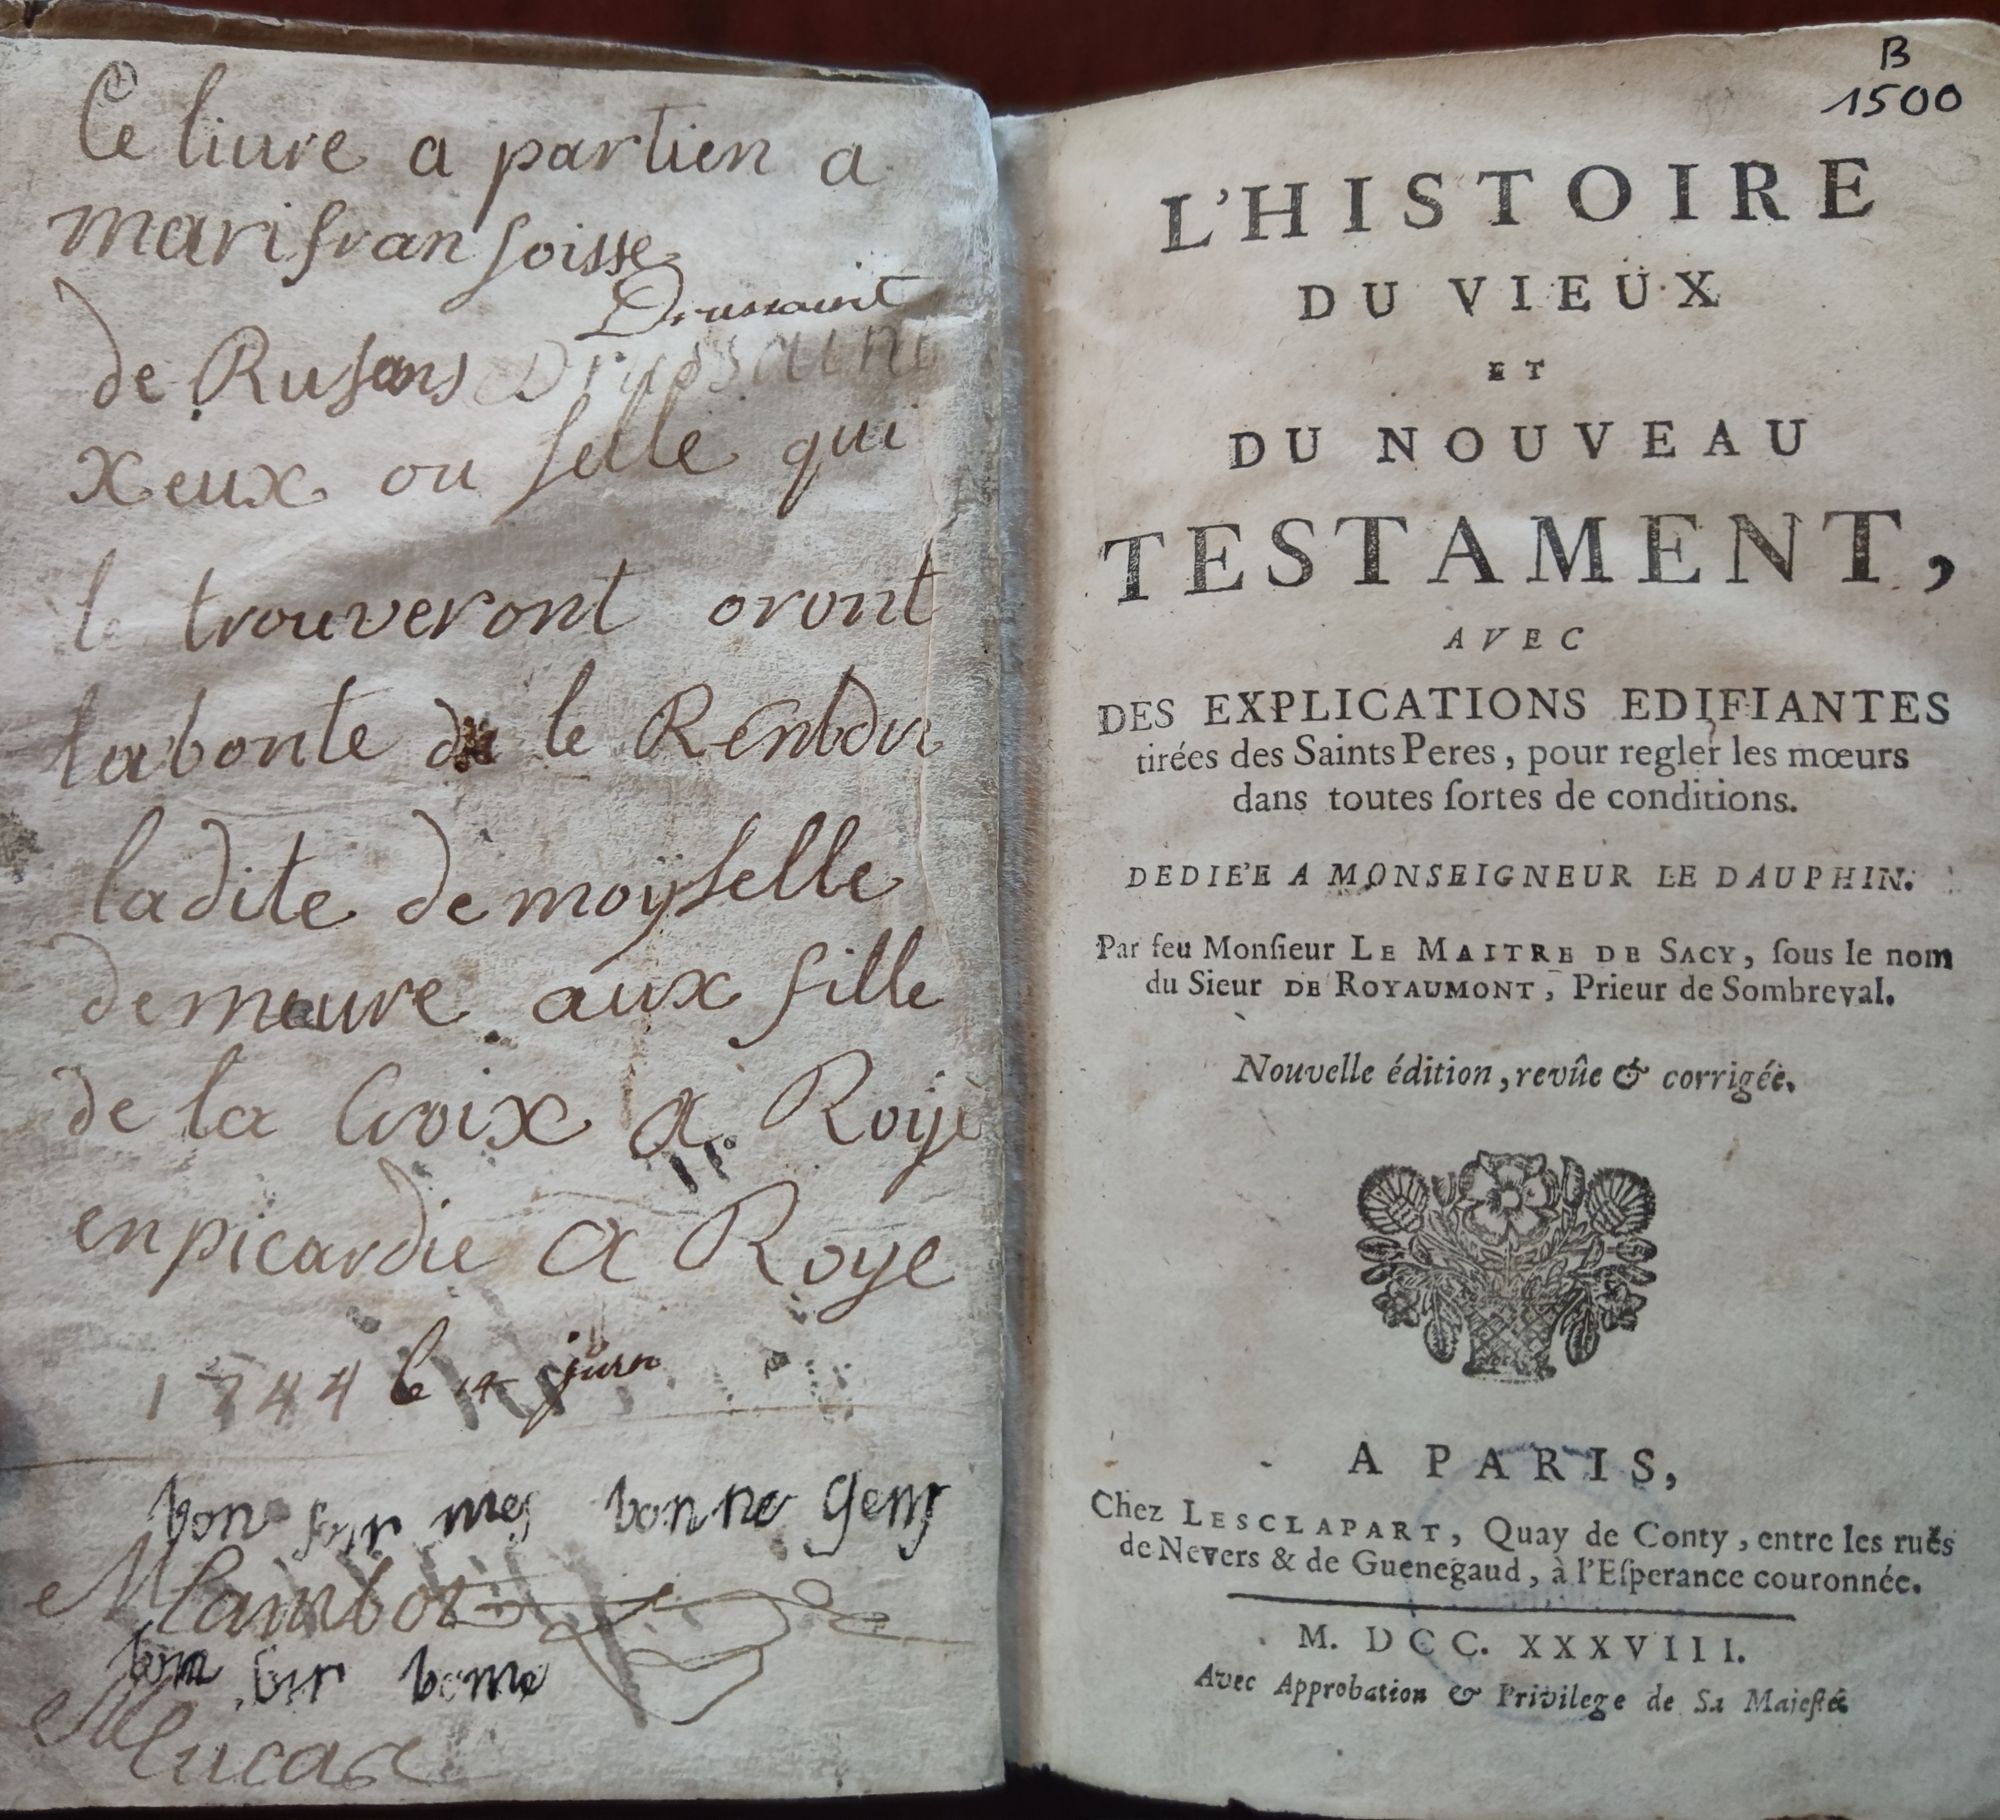 Ce liure a partien a
mari fran soisse
Drussaint
de Rusans Drussaint
xeux ou selle qui
le trouveront oront
la bonte de le Rendu
la dite demoyselle
demeure aux fille
de la Croix a Roye
en picardie a Roye
1744 le 14 juin
bon soir mes bonne gens
M lambot
bon soir bonne
M lucas
B
1500
L'HISTOIRE
DU VIEUX
ET
DU NOUVEAU
TESTAMENT,
AVEC
DES EXPLICATIONS EDIFIANTES
tirées des Saints Peres, pour regler les mœurs
dans toutes ſortes de conditions.
DEDIE'E A MONSEIGNEUR LE DAUPHIN.
Par feu Monſieur LE MAITRE DE SACY, ſous le nom
du Sieur DE ROYAUMONT, Prieur de Sombreval.
Nouvelle édition, revûe & corrigée.
A PARIS,
Chez LESCLAPART, Quay de Conty, entre les ruës
de Nevers & de Guenegaud, à l'Eſperance couronnée.
M. DCC. XXXVIII.
Avec Approbation & Privilege de Sa Majeſté